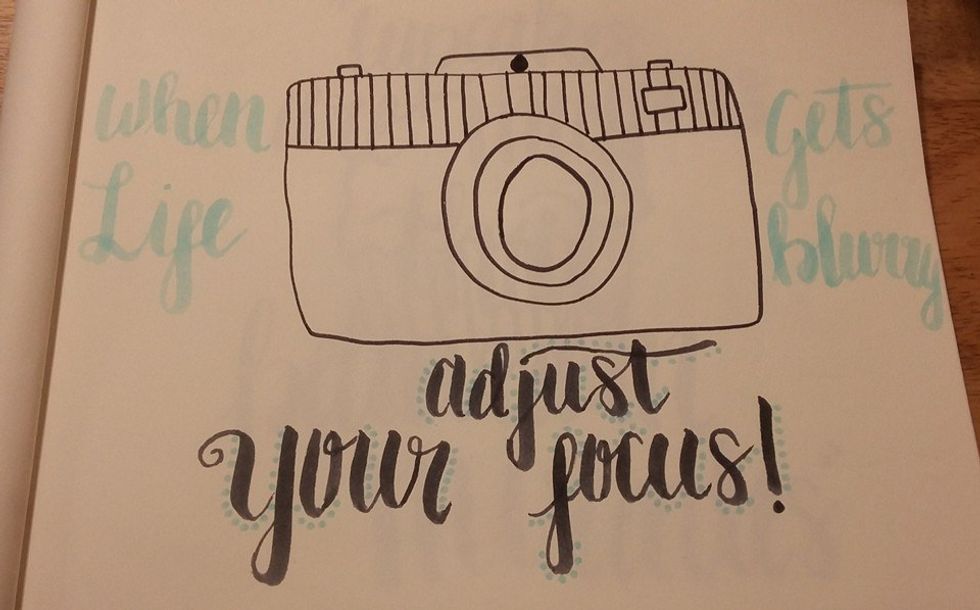 When
Life
Gets
blurry
adjust
your focus!